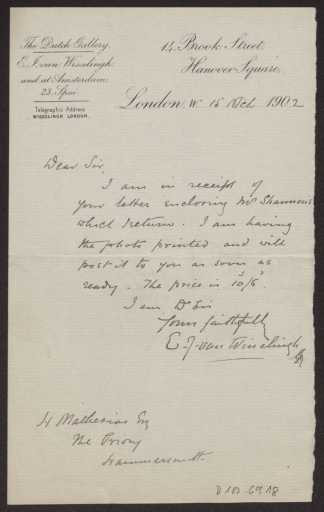 The Dutch Gallery.
E. J. van Wisselingh
and at Amsterdam.
23. Spui
Telegraphic Address
WISSELINGH LONDON.
14 Brook Street.
Hanover Square,
London, W 15 Oct 1902
Dear Sir,
I am in receipt of
your letter enclosing Mr Shannons
which I return. I am having
the photo printed and will
post it to you as soon as
ready. The price is 10/6.
I am Dr Sir
Yours faithfully
E. J. van Wisselingh
H Mathesius Esq
The Priory
Hammersmith.
D 102-6918